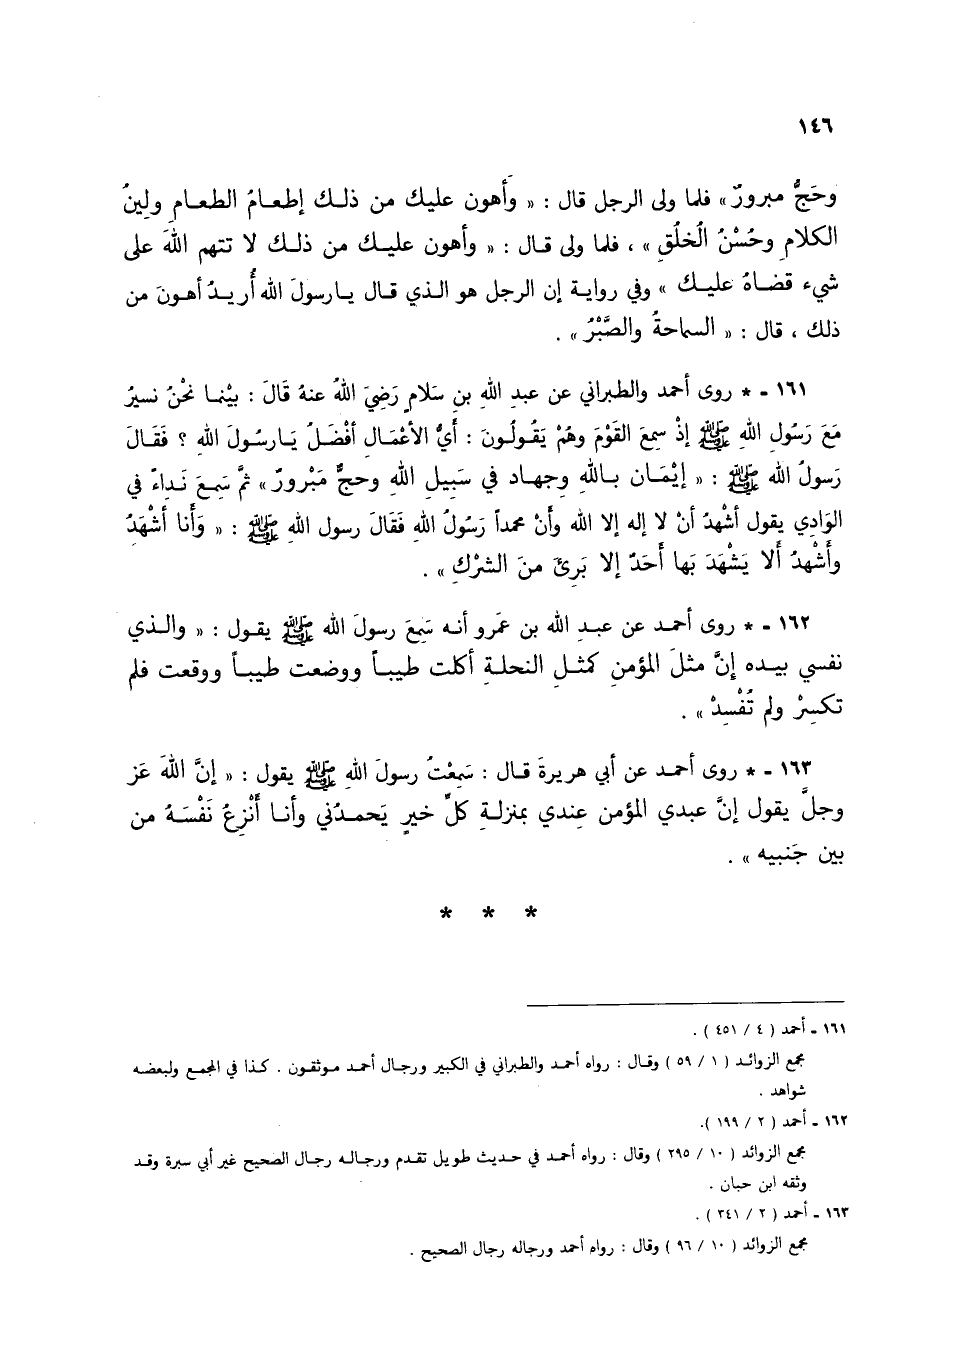 ١٤٦
وحَجٌّ مبرورٌ» فلما ولى الرجل قال : « وأَهون عليك من ذلـك إطعامُ الطعامِ ولِينُ
الكلامِ وحُسْنُ الْخلُقِ » ، فلما ولى قـال : « وأهون عليـك من ذلـك لا تتهم اللهَ على
شيء قضـاهُ عليـك » وفي روايـة إن الرجل هو الـذي قـال يـارسولَ الله أُريـدُ أهونَ من
ذلك ، قال : « السماحةُ والصَّبْرُ» .
١٦١ - * روى أحمد والطبراني عن عبدِ اللهِ بنِ سَلامٍ رَضِيَ اللهُ عنهُ قَالَ : بيْنما نحْنُ نسيرُ
مَعَ رَسُولِ اللهِ ﷺ إذْ سمِعَ القَوْمَ وهُمْ يَقُولُونَ : أيُّ الأعْمَالِ أفْضَلُ يَـارسُولَ اللهِ ؟ فَقَالَ
رَسولُ اللهِ ﷺ : « إيْمَان بـاللهِ وجِهـاد في سَبِيلِ اللهِ وحجٌّ مَبْرورٌ» ثمَّ سَمِعَ نَداءً في
الوَادي يقول أشْهدُ أنْ لا إله إلا الله وَأنْ محمداً رَسُولُ اللهِ فَقَالَ رسول اللهِ ﷺ : « وَأنا أشْهَدُ
وأَشْهدُ ألا يَشْهَدَ بَها أَحَدٌ إلا بَرِئَ منَ الشرْكِ » .
١٦٢ - * روى أحمـد عن عبـد الله بن عمَرو أنـه سَمِعَ رسولَ الله ﷺ يقول : « والـذي
نفسي بيـده إنَّ مثلَ المؤمنِ كمثـلِ النحلـةِ أكلت طيبـاً ووضعت طيبـاً ووقعت فلم
تكسِرْ ولم تُفْسِدْ » .
١٦٣ - * روى أحمـد عن أبي هريرةَ قـال : سَمِعْتُ رسولَ اللهِ ﷺ يقول : « إنَّ اللهَ عَز
وجلَّ يقول إنَّ عبدي المؤمن عِندي بمنزلـةِ كلِّ خيرٍ يَحمـدُني وأنـا أَنْزِعُ نَفْسَـهُ من
بين جَنبيه » .
* * *
١٦١ - أحمد ( ٤ / ٤٥١ ) .
مجمع الزوائـد ( ١ / ٥٩ ) وقـال : رواه أحمـد والطبراني في الكبير ورجـال أحمـد مـوثقـون . كـذا في المجمع ولبعضـه
شواهد .
١٦٢ - أحمد ( ٢ / ١٩٩ ).
مجمع الزوائد ( ١٠ / ٢٩٥ ) وقال : رواه أحمـد في حـديث طويل تقدم ورجـالـه رجال الصحيح غير أبي سبرة وقـد
وثقه ابن حبان .
١٦٣ - أحمد ( ٢ / ٣٤١ ) .
مجمع الزوائد ( ١٠ / ٩٦ ) وقال : رواه أحمد ورجاله رجال الصحيح .